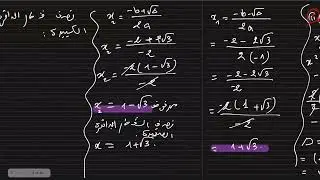 نصف قطر الدائرة
الكبيرة:
x₂ = (-b+√Δ)/2a
x₂ = (-2+2√3)/-2
= -2(1-√3)/-2
x₂ = 1-√3 مرفوض
نصف قطر الدائرة
الصغيرة:
x = 1+√3.
x₁ = (-b-√Δ)/2a
= (-2-2√3)/2(-1)
= (-2-2√3)/-2
= -2(1+√3)/-2
= 1+√3